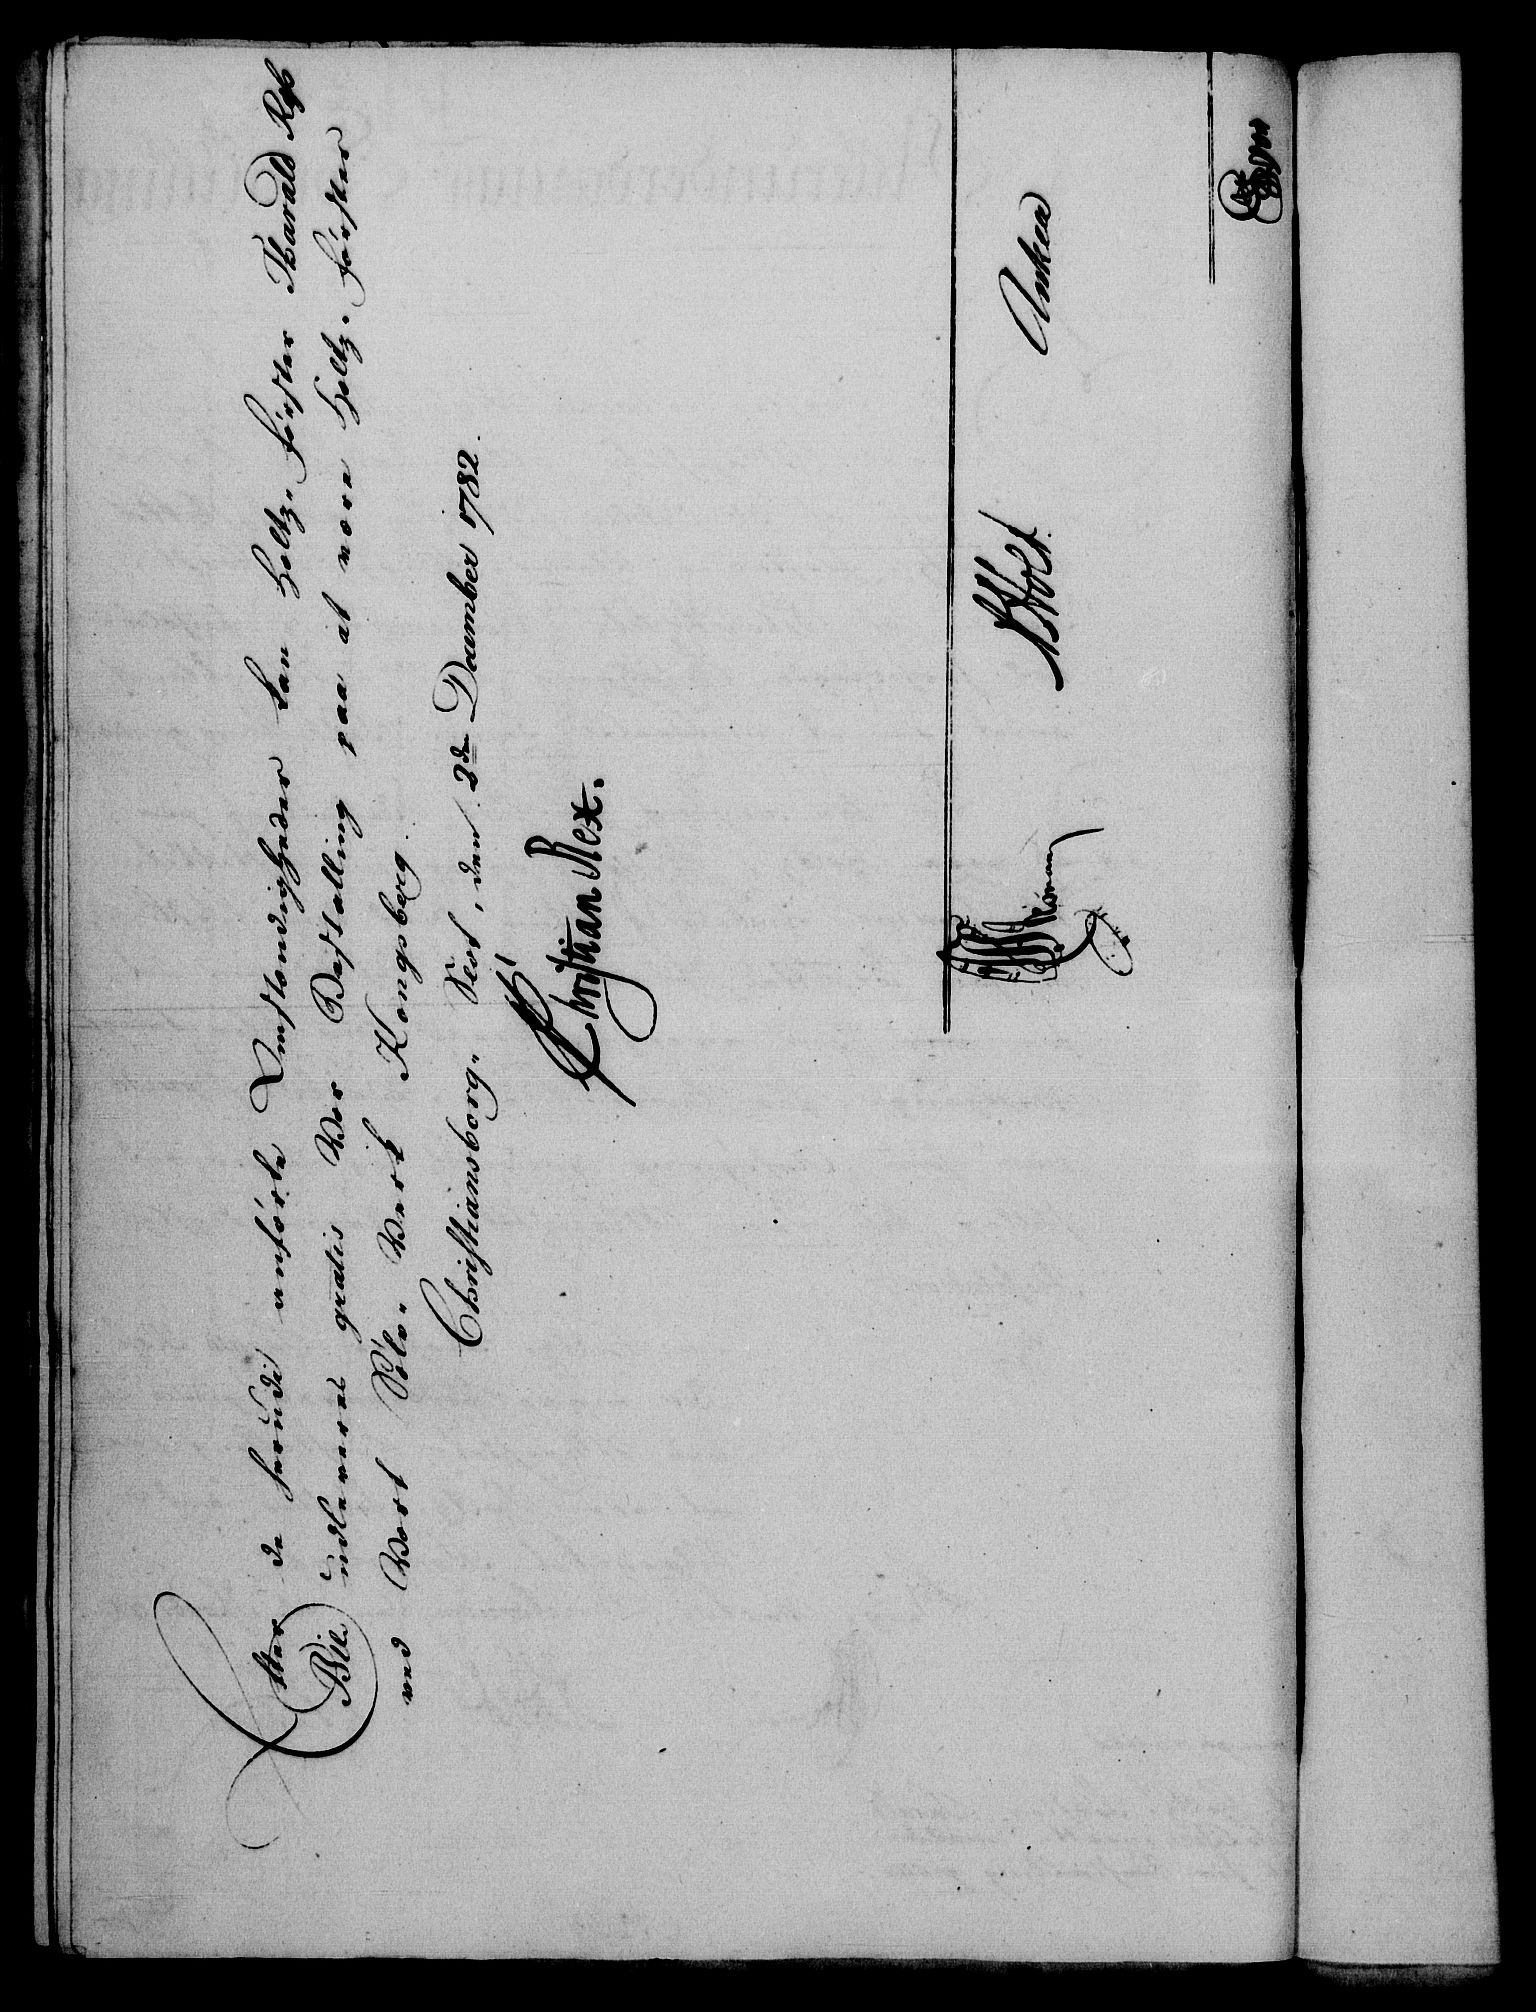 Efter de herudi anførte Omstændigheder kan Holtz-Förster Tharald Riis
Blis udleveret gratis Vor Bestalling paa at være Holtz-Förster
ved Vort Sölv-Verk Kongsberg.
Christiansborg Slot, den 2den December 1782.
Christian Rex.
Holst
Anker